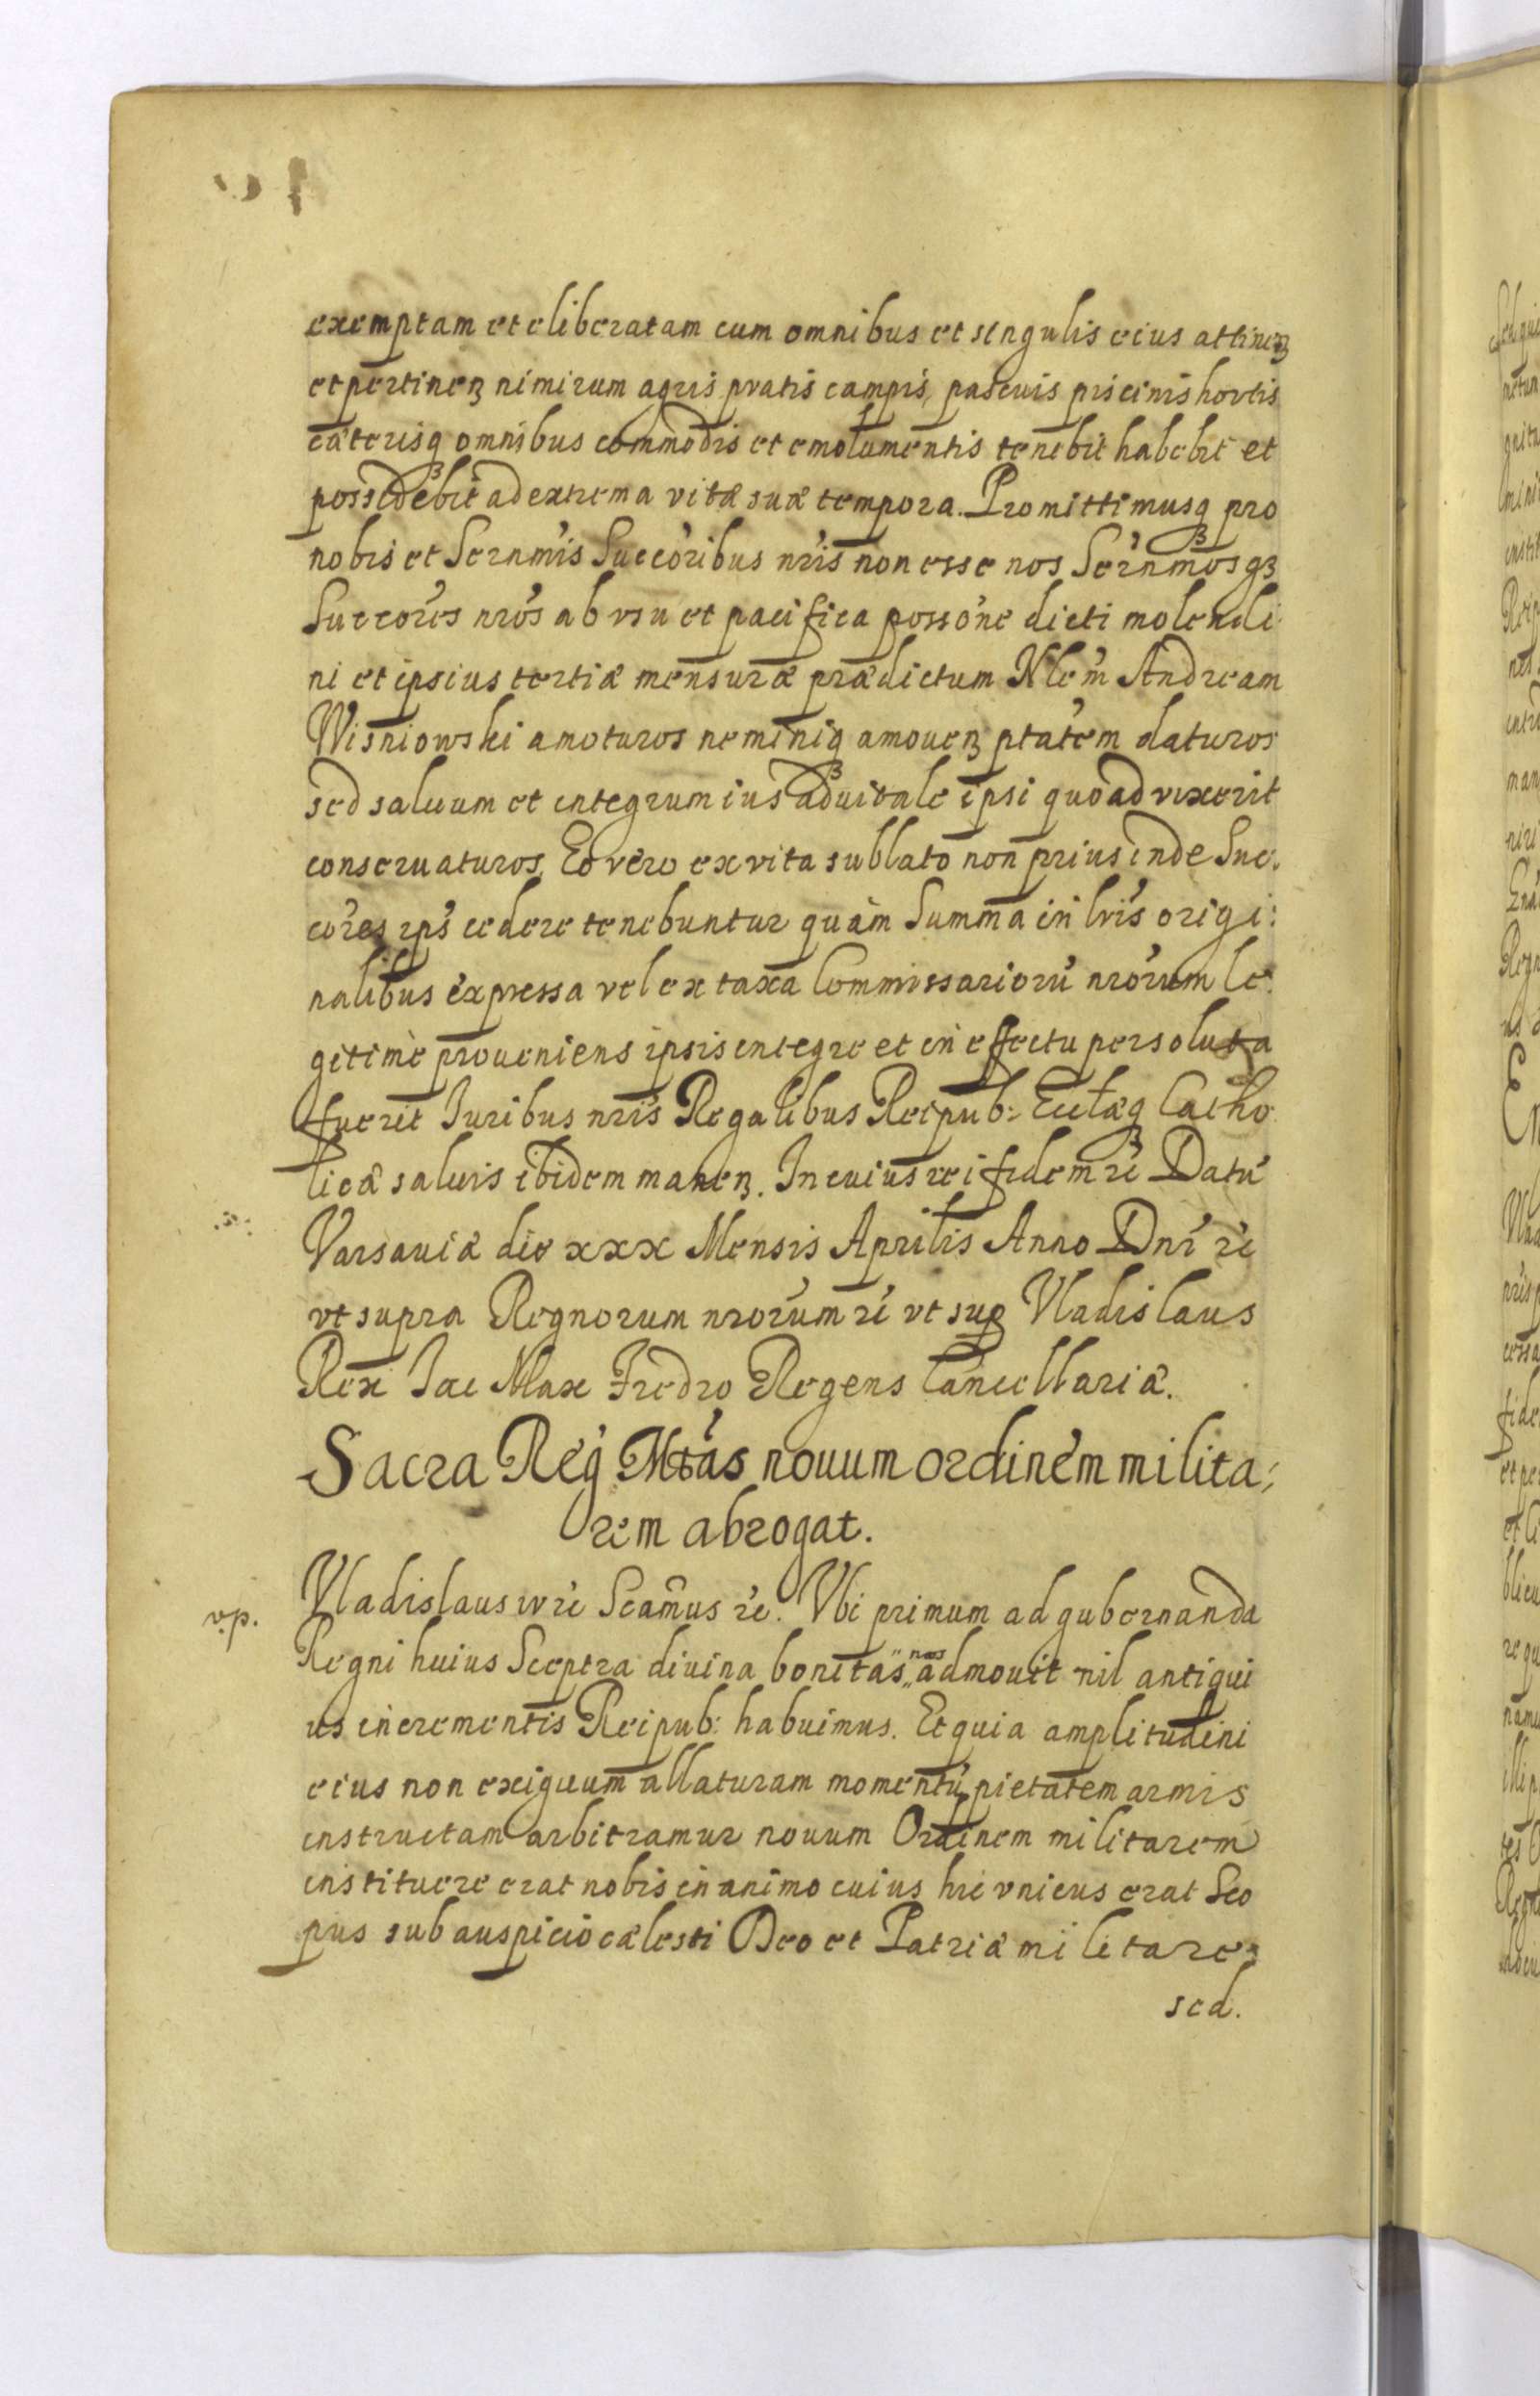 exemptam et eliberatam cum omnibus et singulis eius attinenʒ
et pertinenʒ nimirum agris pratis campis, pascuis piscinis hortis
cæterisqʒ omnibus commodis et emolumentis tenebit habebit et
possidebit ad extrema vitæ suæ tempora. Promittimusqʒ pro
nobis et Sernmis Succoribus nris non esse nos Sernmosqʒ
Succores nros ab vsu et pacifica possone dicti molendi
ni et ipsius tertiæ mensuræ prædictum Nlem Andream
Wisniowski amoturos neminiqʒ amouenʒ ptatem daturos
sed saluum et integrum ius aduitale ipsi quoad vixerit
conseruaturos. Eo vero ex vita sublato non prius inde Suc
cores ips cedere tenebuntur quàm Summa in lris origi:
nalibus expressa vel ex taxa Commissariorū nrorum le:
gitimè proueniens ipsis integre et in effectu persoluta
fuerit Iuribus nris Regalibus Reipub: Ecclæqʒ Catho
licæ saluis ibidem manenʒ. In cuius rei fidem rc Datū
Varsauiæ die xxx Mensis Aprilis Anno Dni rc
vt supra Regnorum nrorum rc vt sup Vladislaus
Rex Iac Max Fredro Regens Cancellariæ.
Sacra Reg Mtas nouum ordinem milita:
rem abrogat.
v.p.
Vladislaus iv rc Scamus rc. Vbi primum ad gubernanda
Regni huius Sceptra diuina bonitas nos admouit nil antiqui
us incrementis Reipub: habuimus. Et quia amplitudini
eius non exiguum allaturam momentū pietatem armis
instructam arbitramur nouum Ordinem militarem
instituere erat nobis in animo cuius hic vnicus erat Sco
pus sub auspicio cælesti Deo et Patriæ militare:
sed.